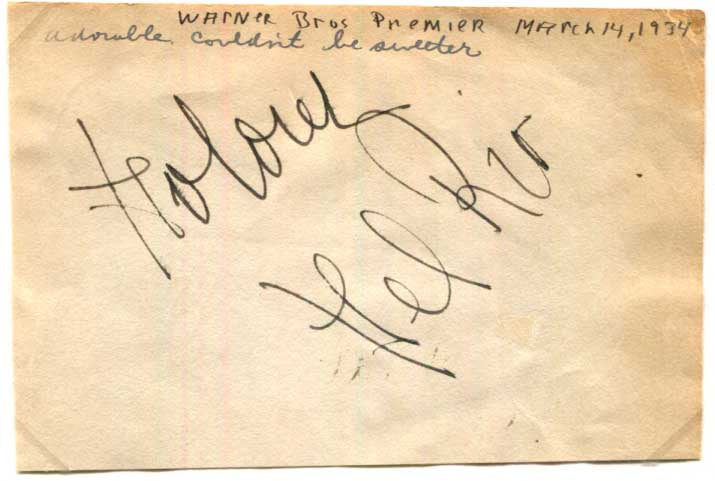 WARNER BROS PREMIER MARCH 14, 1934
adorable couldn't be sweeter
Dolores
Del Rio